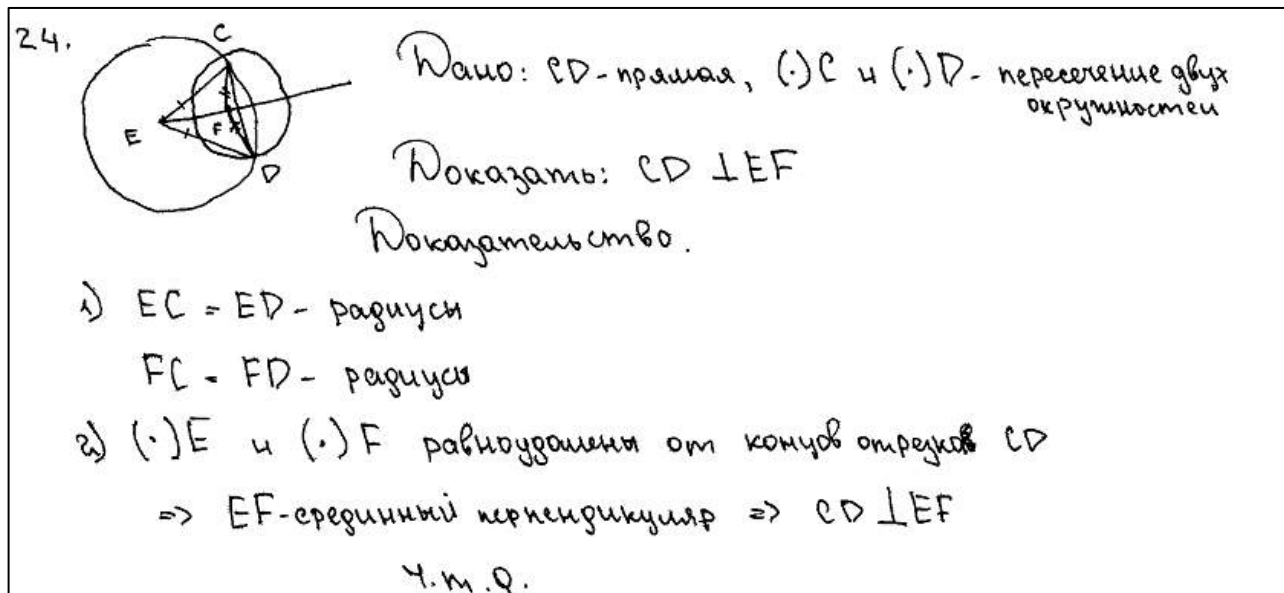 24.
C
E
F
D
Дано: CD - прямая, (·)C и (·)D - пересечение двух
окружностей
Доказать: CD ⊥ EF
Доказательство.
1) EC = ED - радиусы
FC = FD - радиусы
2) (·)E и (·)F равноудалены от концов отрезков CD
=> EF - срединный перпендикуляр => CD ⊥ EF
Ч.т.д.